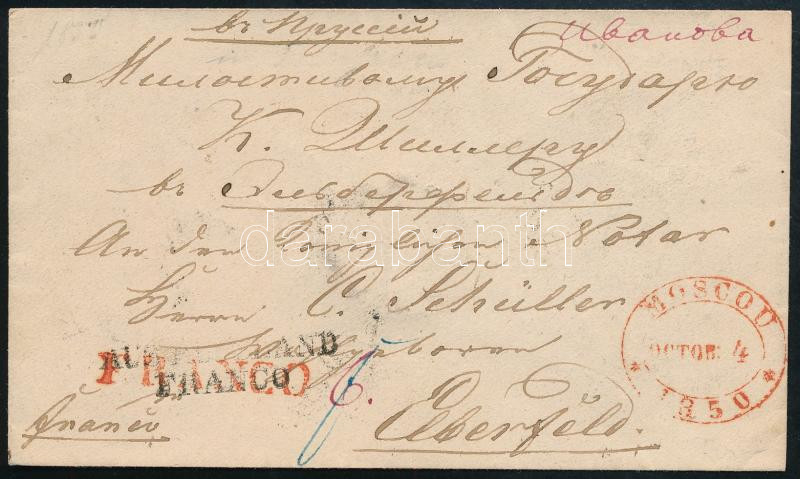 въ Пруссій
Иванова
Милостивому Государю
К. Шиллеру
въ Эльберфельдѣ
An den Königlichen Notar
Herrn C. Schüller
Wohlgeboren
Elberfeld.
franco
FRANCO
AUS RUSSLAND
FRANCO
MOSCOU
OCTOB: 4
1850
darabanth